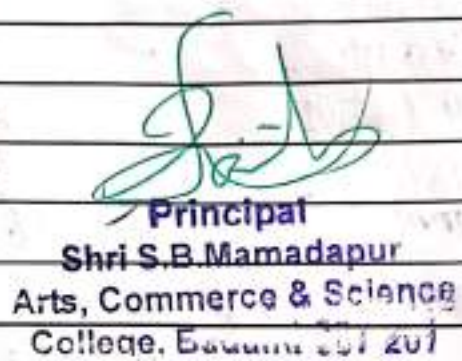 Principal
Shri S.B.Mamadapur
Arts, Commerce & Science
College,